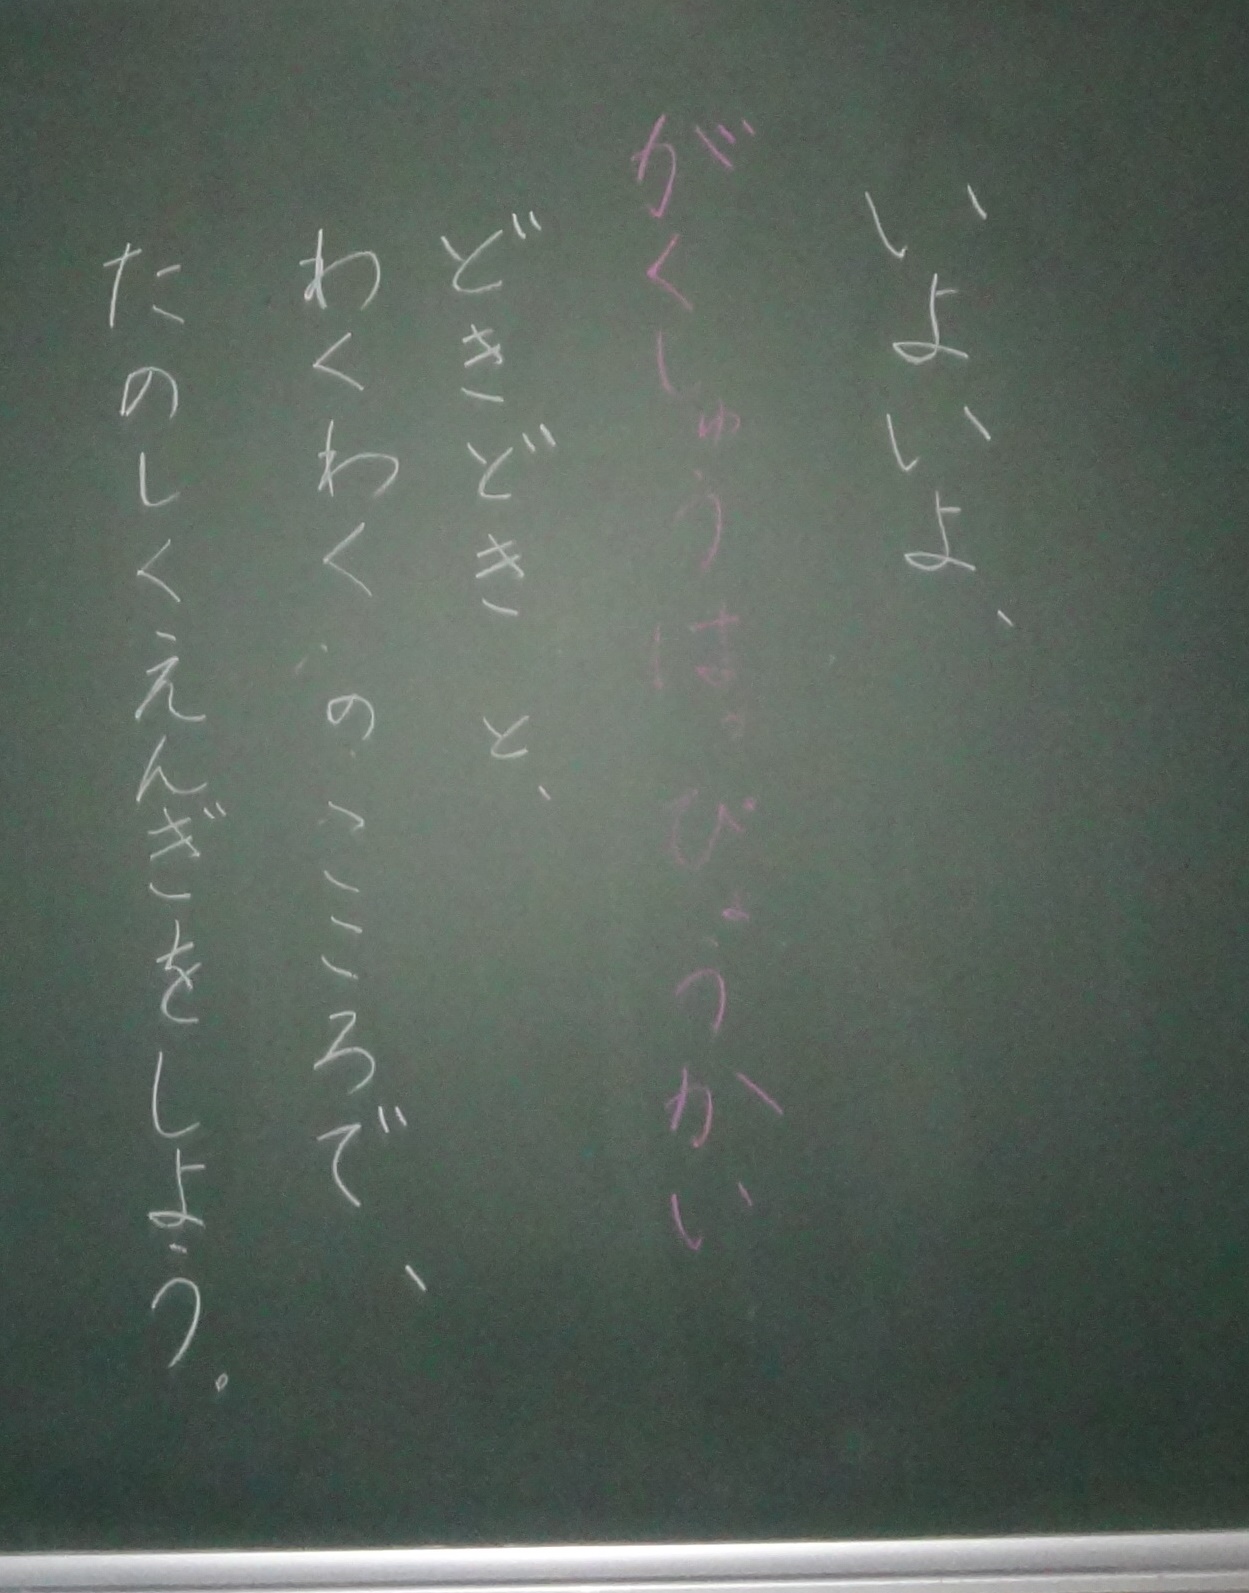 いよいよ、
がくしゅうはっぴょうかい
どきどき と、
わくわく のこころで、
たのしくえんぎをしよう。